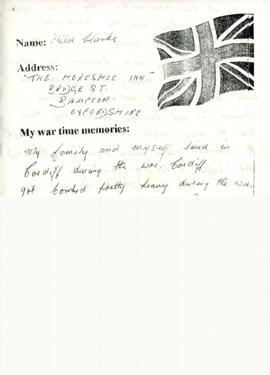 Name: Clarke
Address:
"THE HORESHOE INN"
BRIDGE ST.
BAMPTON.
OXFORDSHIRE
My war time memories:
My family and myself lived in
Cardiff during the war. Cardiff
got bombed pretty heavy during the war.